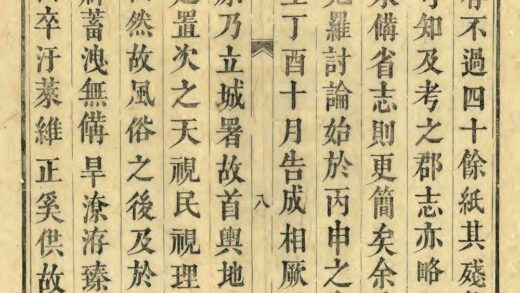 不過四十餘紙其殘
可知及考之郡志亦略
備省志則更簡矣余
羅討論始於丙申之
丁酉十月告成相厥
八
原乃立城署故首輿地
置次之天視民視理
然故風俗之後及於
蓄洩無備旱潦洊臻
卒汙萊維正奚供故